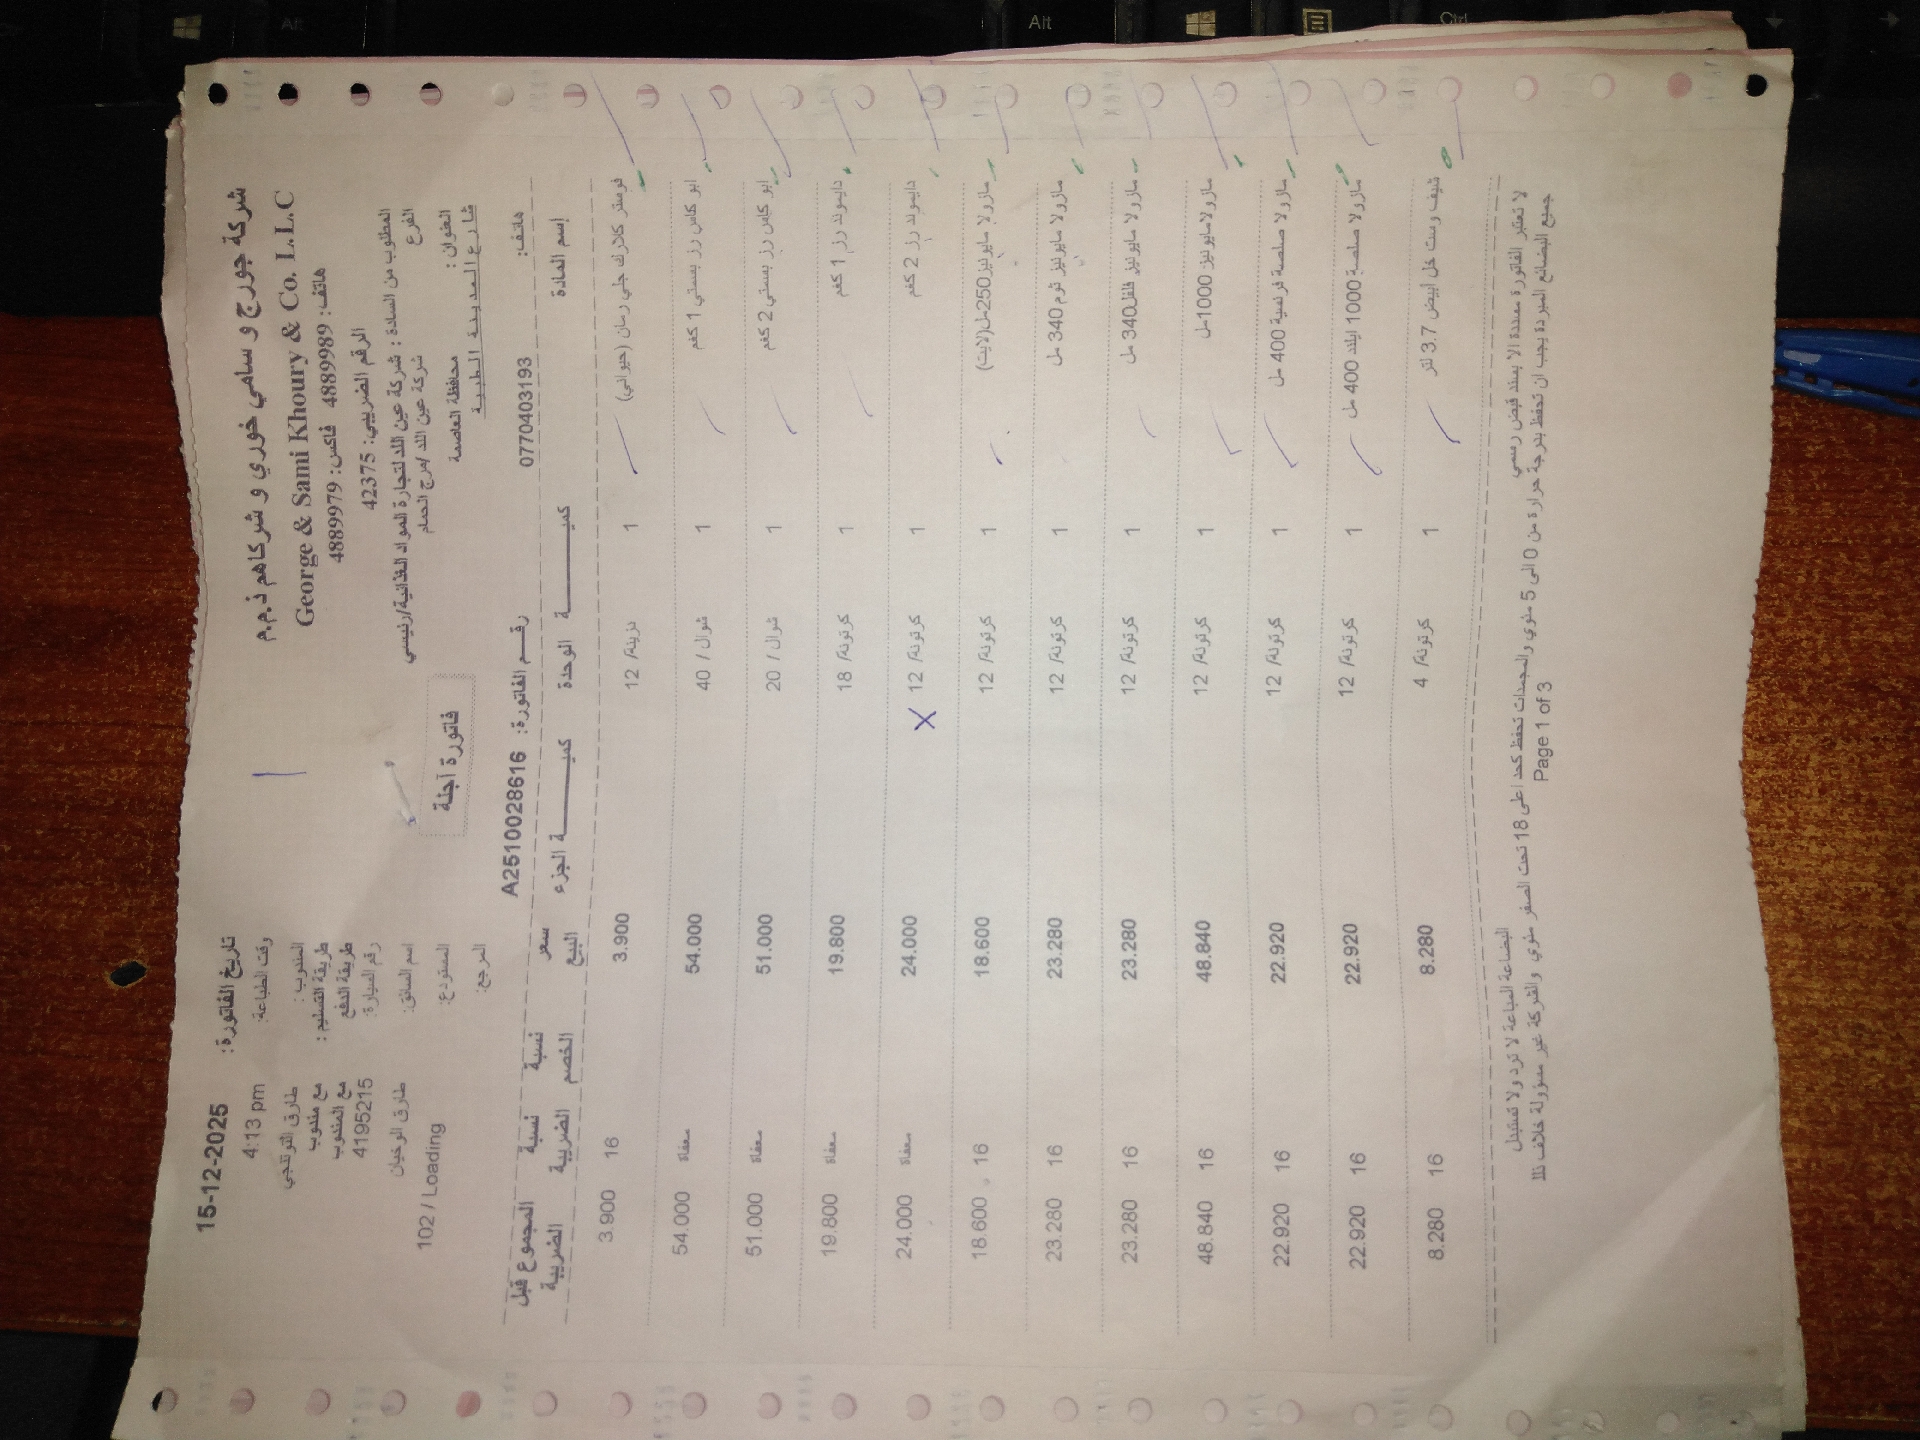 شركة جورج و سامي خوري و شركاهم ذ.م.م
George & Sami Khoury & Co. L.L.C
هاتف: 4889989 فاكس: 4889979
الرقم الضريبي: 42375
المطلوب من السادة : شركة عين الله لتجارة المواد الغذائية/رئيسي
الفرع شركة عين الله /مرج الحمام
العنوان : محافظة العاصمة
شارع المدينة الطبية
هاتف: 0770403193
تاريخ الفاتورة: 15-12-2025
وقت الطباعة: 4:13 pm
المندوب :
طريقة التسليم : مع مندوب
طريقة الدفع مع المندوب
رقم السيارة: 4195215
اسم السائق: طارق الوخيان
المستودع: 102 / Loading
المرجع:
فاتورة آجلة
رقم الفاتورة: A2510028616
إسم المادة كميـة الوحدة كميـة الجزء سعر البيع نسبة الخصم نسبة الضريبة المجموع قبل الضريبية
فوستر كلارك جلي رمان (حيواني) 1 دزينة/ 12 3.900 16 3.900
ابو كاس رز بسمتي 1 كغم 1 شوال / 40 54.000 معفاة 54.000
ابو كاس رز بسمتي 2 كغم 1 شوال / 20 51.000 معفاة 51.000
دايموند رز 1 كغم 1 كرتونة/ 18 19.800 معفاة 19.800
دايموند رز 2 كغم 1 كرتونة/ 12 X 24.000 معفاة 24.000
مازولا مايونيز250مل(لايت) 1 كرتونة/ 12 18.600 16 18.600
مازولا مايونيز ثوم 340 مل 1 كرتونة/ 12 23.280 16 23.280
مازولا مايونيز فلفل340 مل 1 كرتونة/ 12 23.280 16 23.280
مازولا مايونيز 1000مل 1 كرتونة/ 12 48.840 16 48.840
مازولا صلصة فرنسية 400 مل 1 كرتونة/ 12 22.920 16 22.920
مازولا صلصة 1000 ايلاند 400 مل 1 كرتونة/ 12 22.920 16 22.920
شيف وست خل ابيض 3.7 لتر 1 كرتونة/ 4 8.280 16 8.280
لا تعتبر الفاتورة مسددة الا بسند قبض رسمي
البضاعة المباعة لا ترد ولا تستبدل
جميع البضائع المبردة يجب ان تحفظ بدرجة حرارة من 0 الى 5 مئوي والمجمدات تحفظ كحد اعلى 18 تحت الصفر مئوي والشركة غير مسؤولة خلاف ذلك
Page 1 of 3